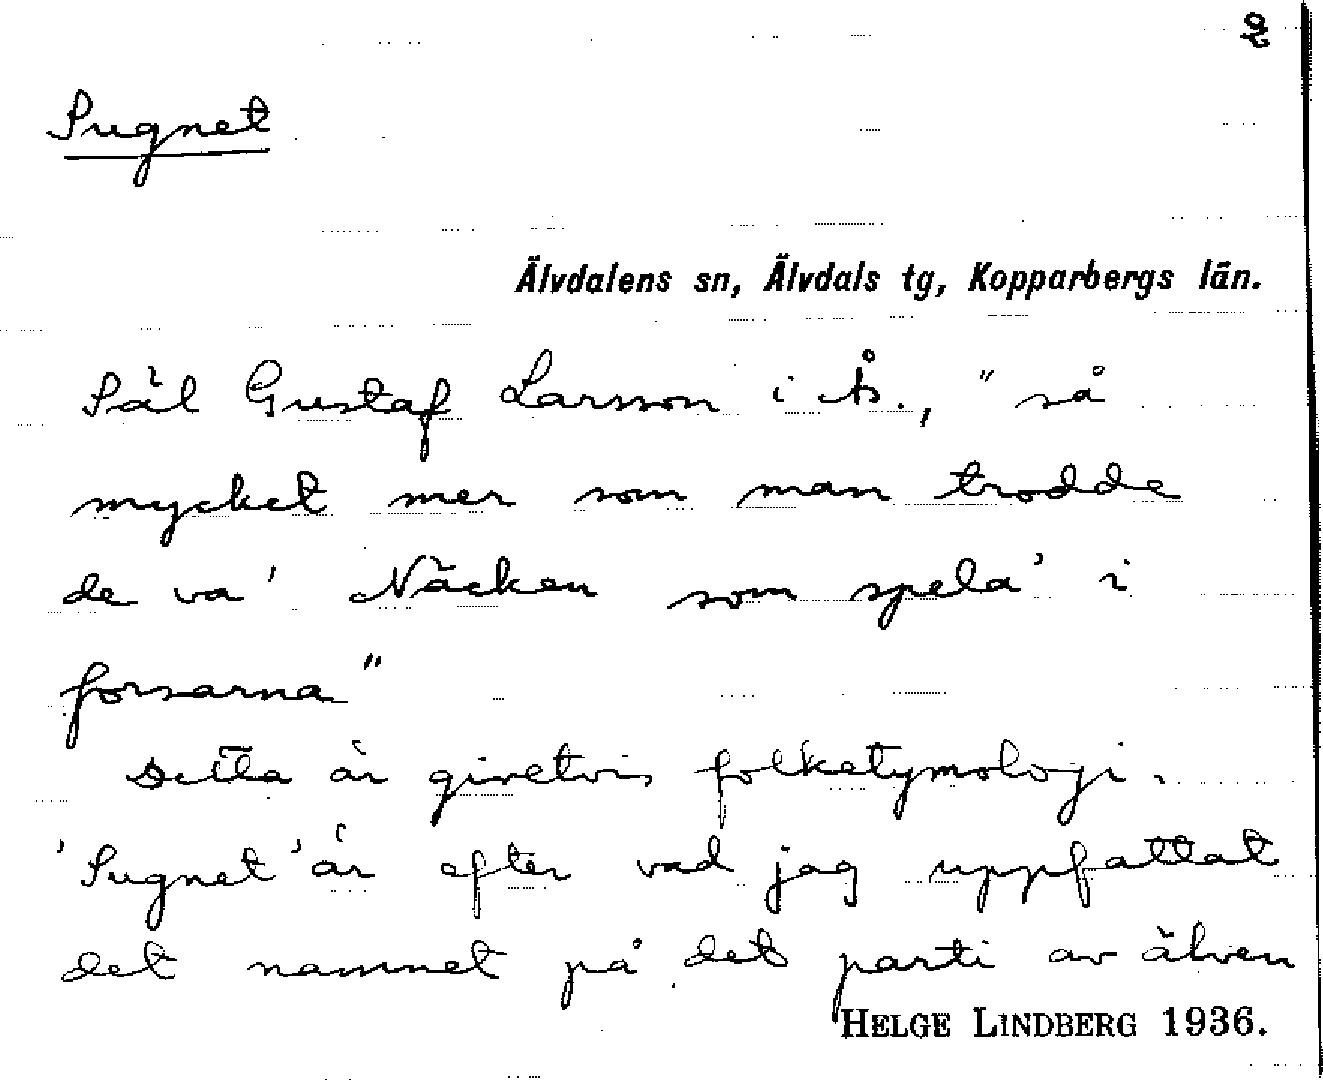 2
Sugnet
Älvdalens sn, Älvdals tg, Kopparbergs län.
Säl Gustaf Larsson i Ås., "så
mycket mer som man trodde
de va' Näcken som spela' i
forsarna"
Detta är givetvis folketymologi.
'Sugnet' är efter vad jag uppfattat
det namnet på det parti av älven
HELGE LINDBERG 1936.